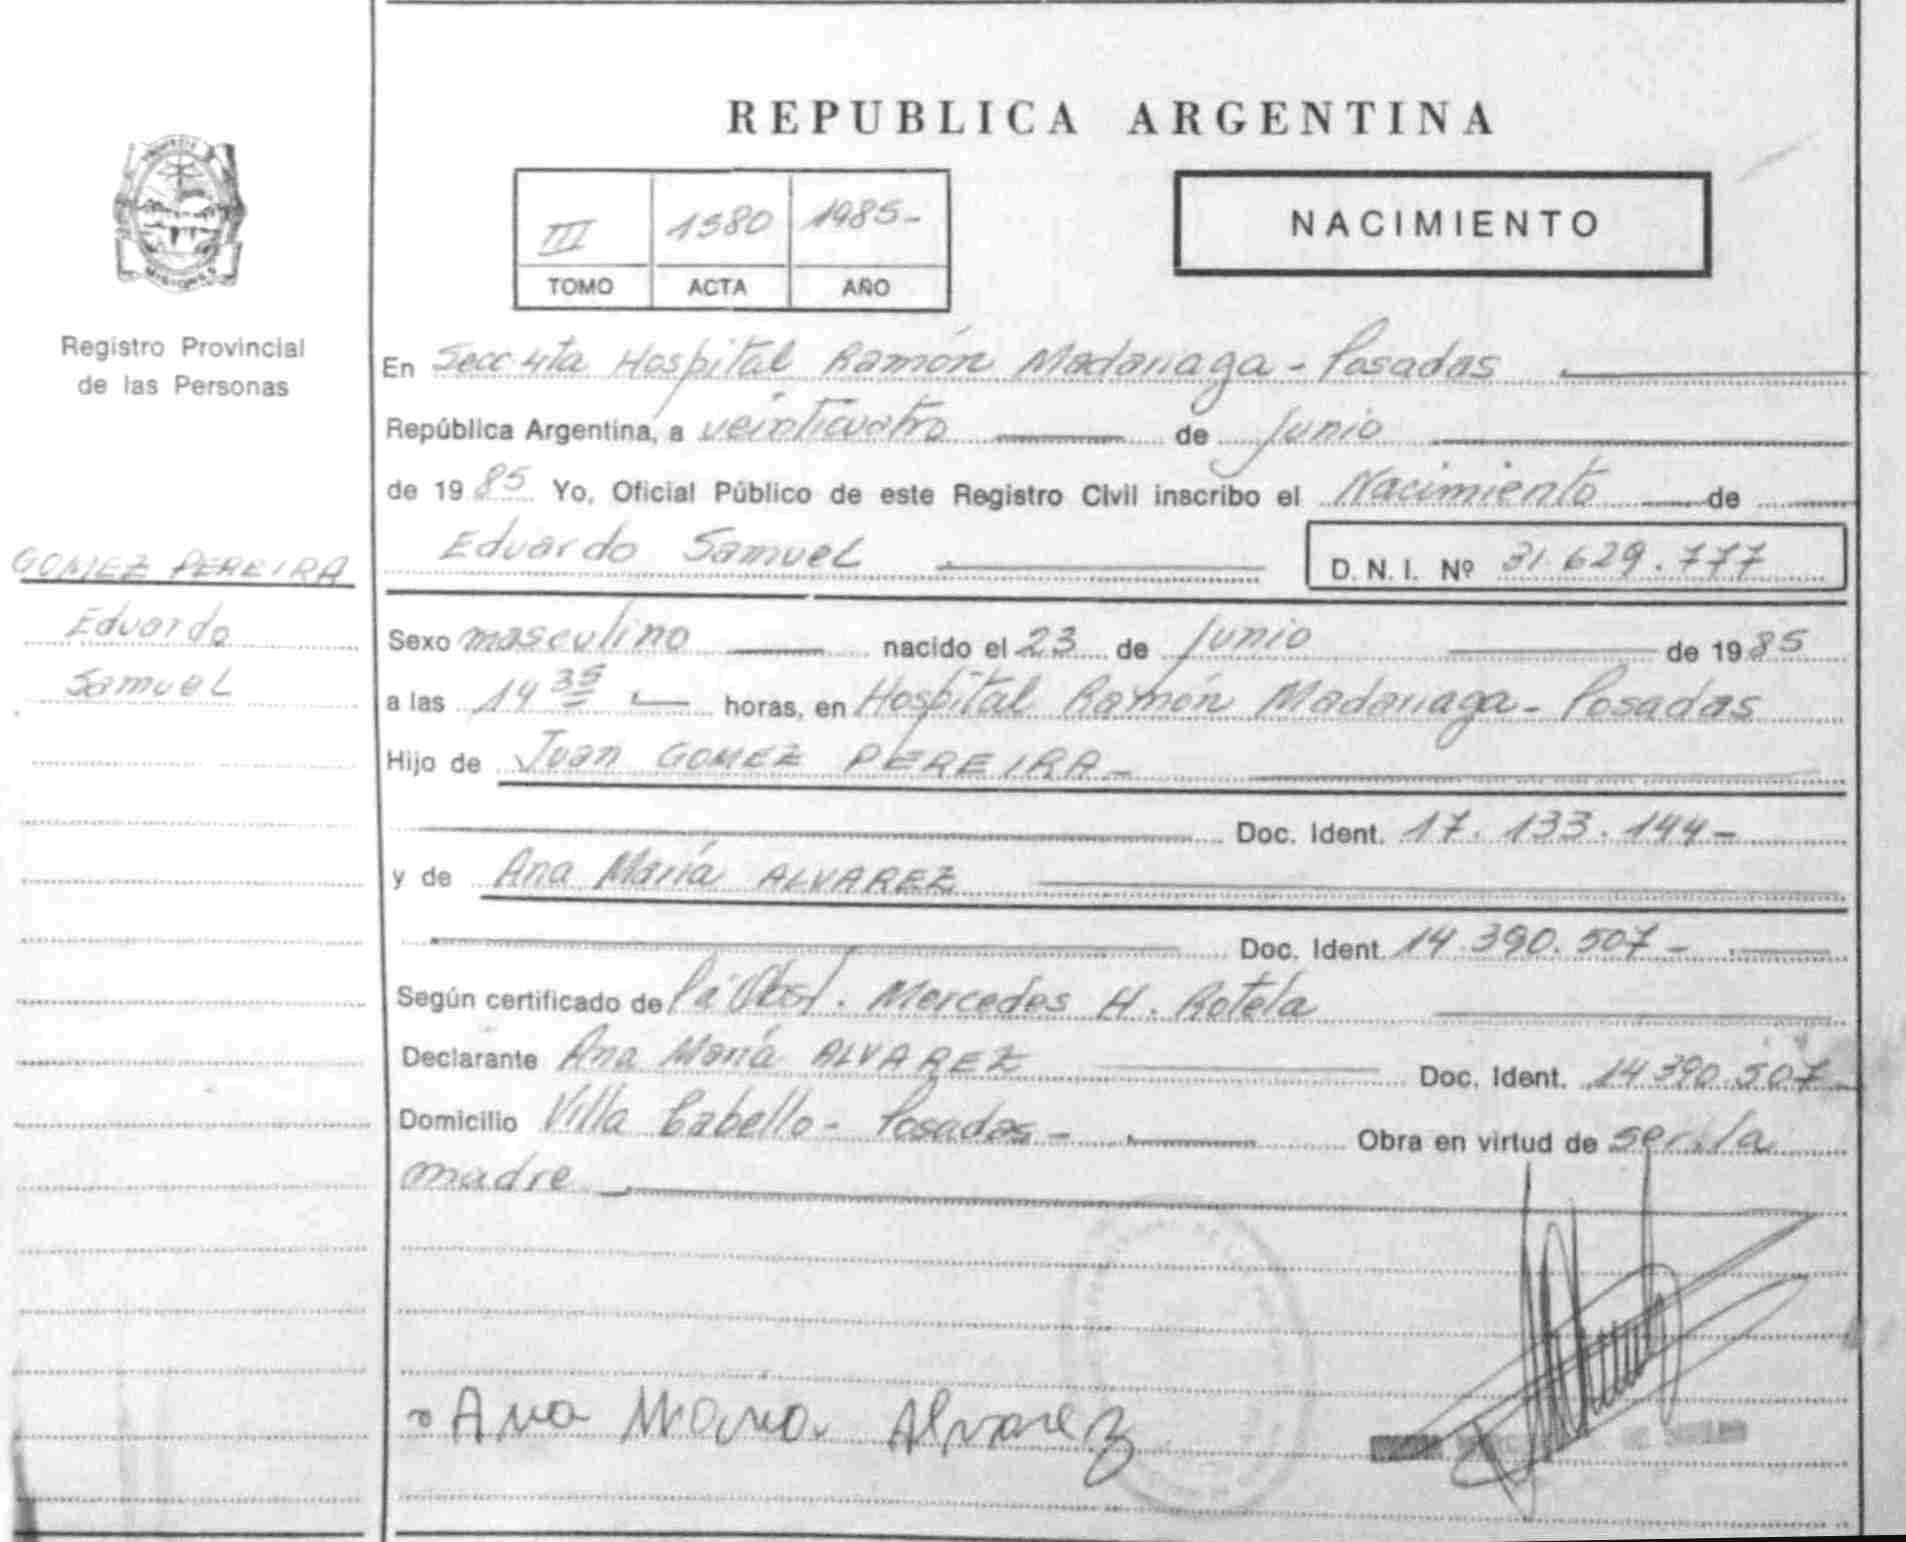 REPUBLICA ARGENTINA
III 1580 1985-
TOMO ACTA AÑO
NACIMIENTO
Registro Provincial
de las Personas
En Secc 4ta Hospital Ramón Madariaga - Posadas
República Argentina, a veinticuatro de junio
de 1985 Yo, Oficial Público de este Registro Civil inscribo el Nacimiento de
Eduardo Samuel D. N. I. Nº 31.629.777
GOMEZ PEREIRA
Eduardo
Samuel
Sexo masculino nacido el 23 de junio de 1985
a las 14 35 horas, en Hospital Ramón Madariaga - Posadas
Hijo de Juan GOMEZ PEREIRA -
Doc. Ident. 17.133.144-
y de Ana María ALVAREZ
Doc. Ident. 14.390.507-
Según certificado de la Obst. Mercedes H. Rotela
Declarante Ana María ALVAREZ Doc. Ident. 14 390.507-
Domicilio Villa Cabello - Posadas - Obra en virtud de ser la
madre
Ana Maria Alvarez